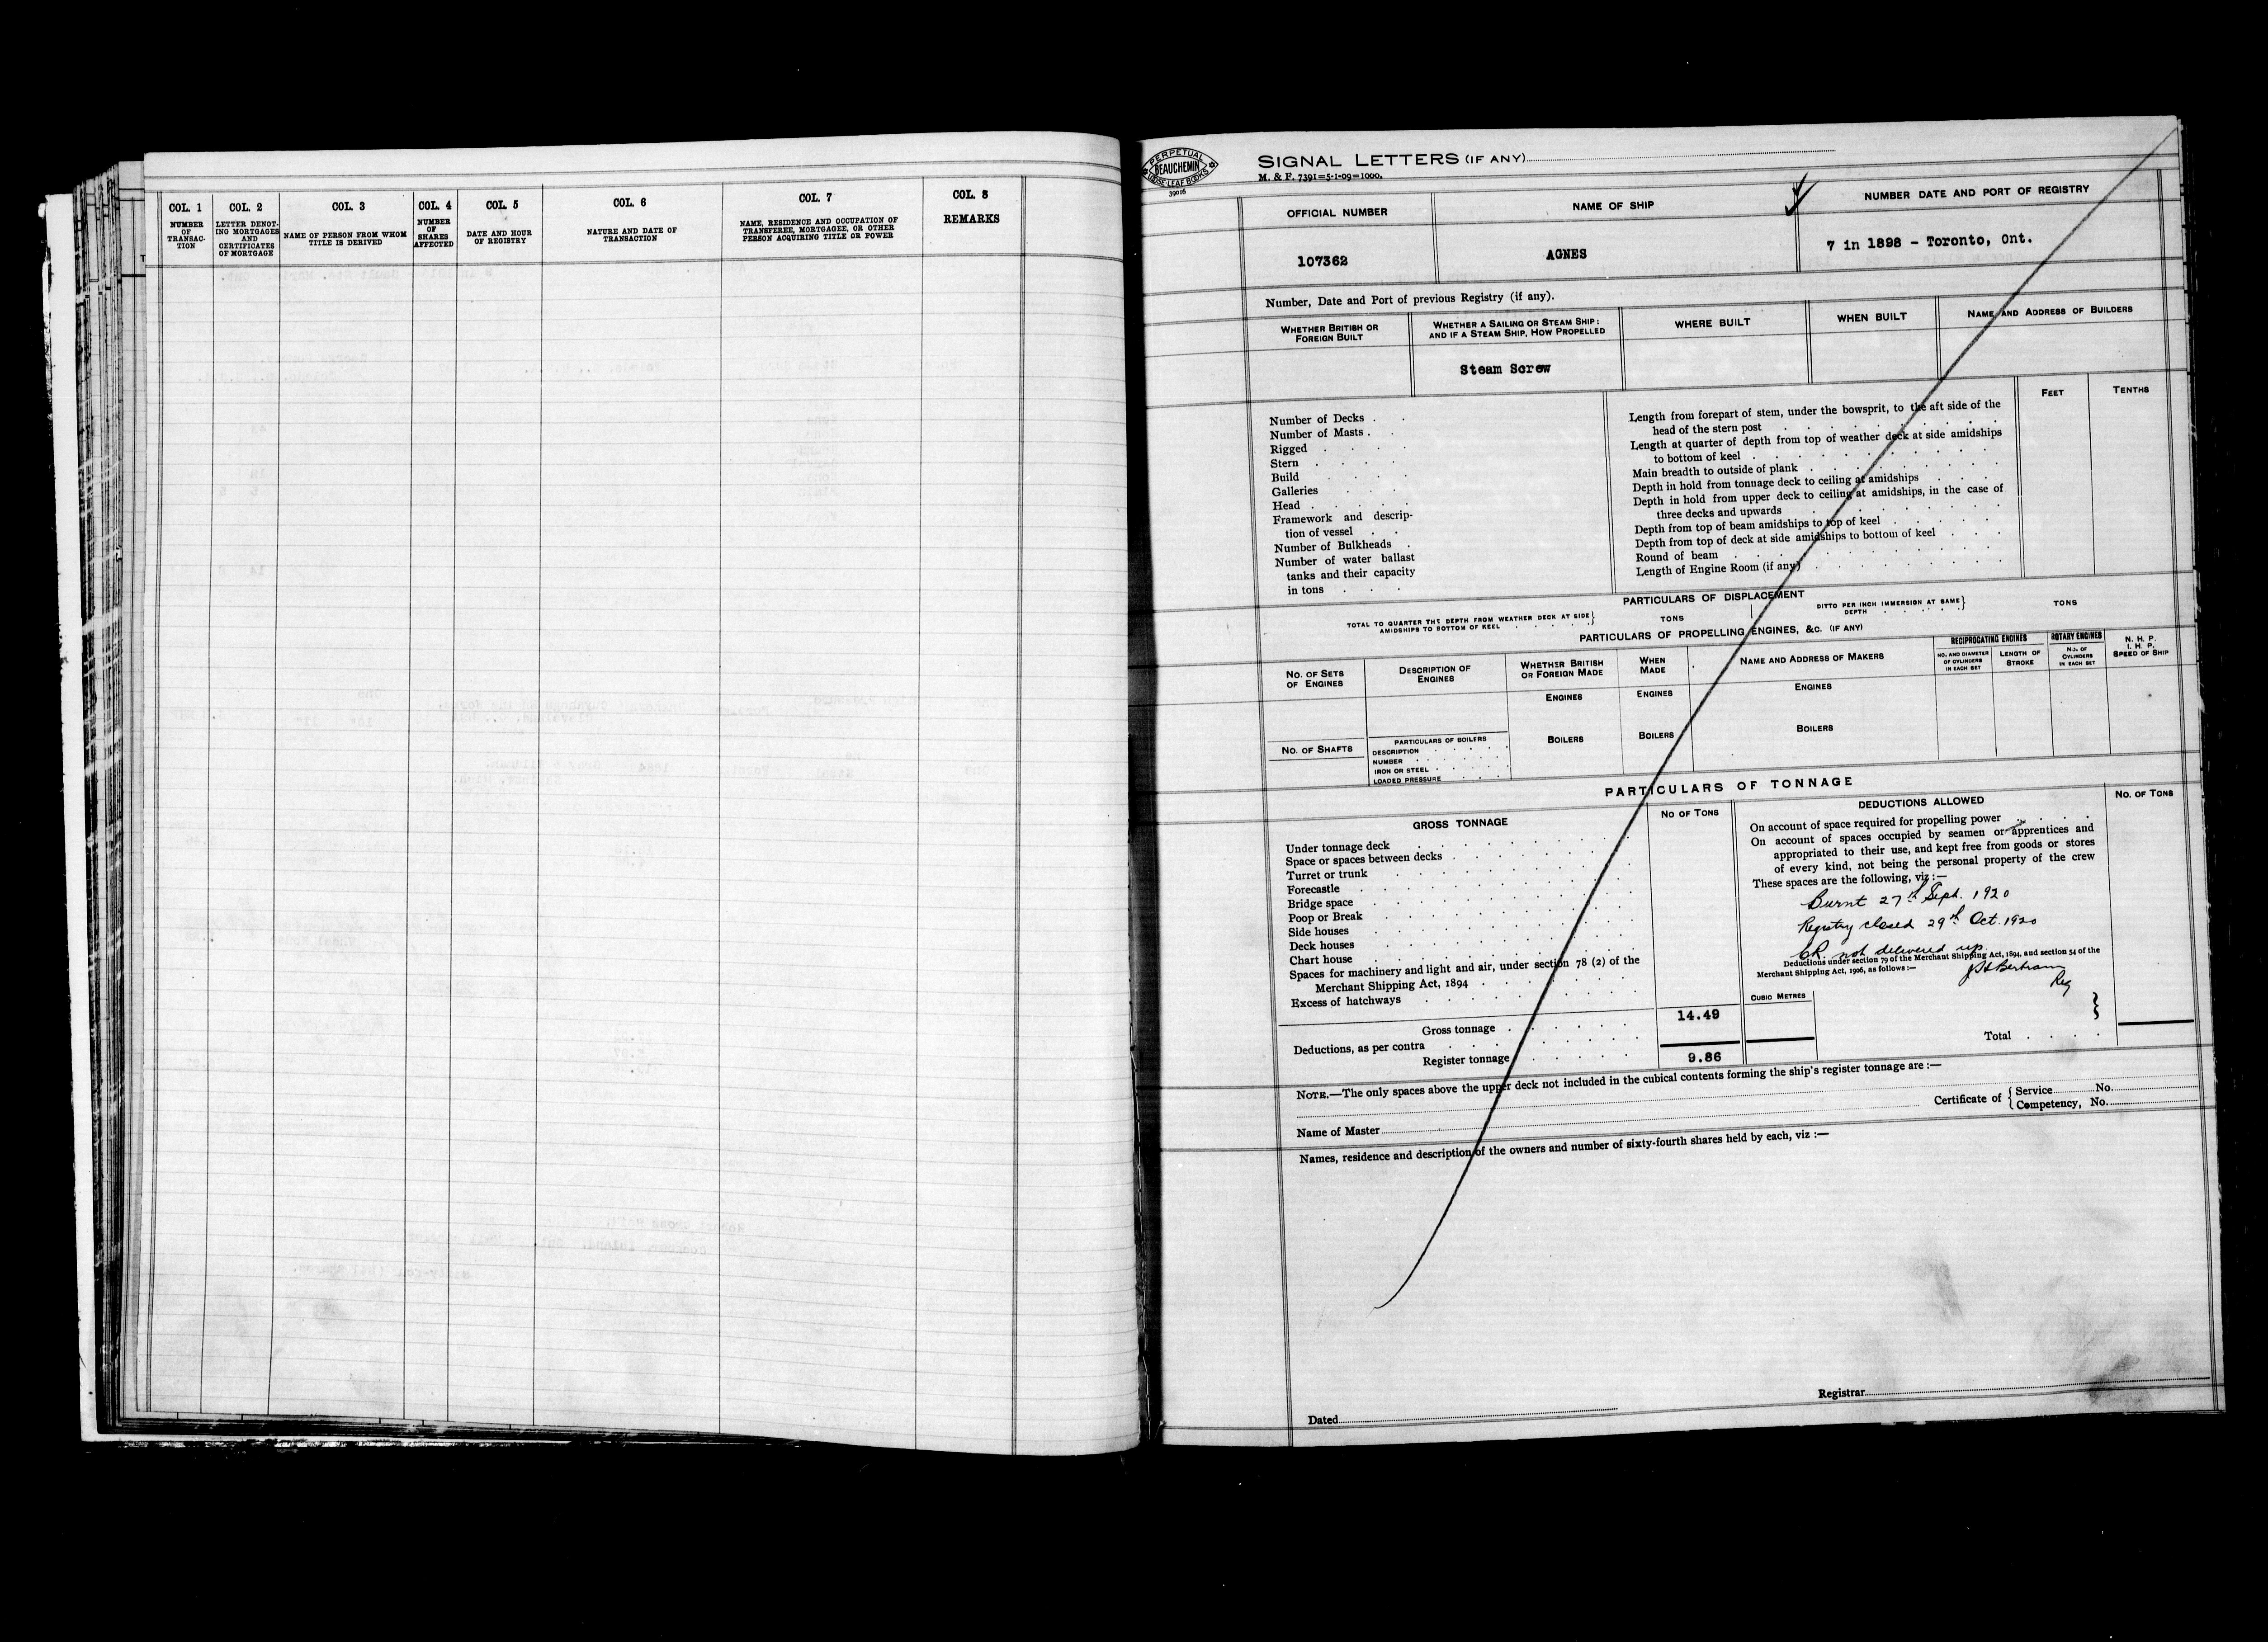 COL. 1
NUMBER
OF
TRANSAC-
TION
COL. 2
LETTER DENOT-
ING MORTGAGES
AND
CERTIFICATES
OF MORTGAGE
COL. 3
NAME OF PERSON FROM WHOM
TITLE IS DERIVED
COL. 4
NUMBER
OF
SHARES
AFFECTED
COL. 5
DATE AND HOUR
OF REGISTRY
COL. 6
NATURE AND DATE OF
TRANSACTION
COL. 7
NAME, RESIDENCE AND OCCUPATION OF
TRANSFEREE, MORTGAGEE, OR OTHER
PERSON ACQUIRING TITLE OR POWER
COL. 8
REMARKS
PERPETUAL
BEAUCHEMIN
LOOSE LEAF BOOKS
39016
SIGNAL LETTERS (IF ANY)
M. & F. 7391=5-1-09=1000.
OFFICIAL NUMBER
107362
NAME OF SHIP
AGNES
NUMBER DATE AND PORT OF REGISTRY
7 in 1898 - Toronto, Ont.
Number, Date and Port of previous Registry (if any).
WHETHER BRITISH OR
FOREIGN BUILT
WHETHER A SAILING OR STEAM SHIP:
AND IF A STEAM SHIP, HOW PROPELLED
Steam Screw
WHERE BUILT
WHEN BUILT
NAME AND ADDRESS OF BUILDERS
Number of Decks . .
Number of Masts . .
Rigged . . . .
Stern . . . .
Build . . . .
Galleries . . .
Head . . . . .
Framework and descrip-
tion of vessel . .
Number of Bulkheads .
Number of water ballast
tanks and their capacity
in tons . . .
FEET
TENTHS
Length from forepart of stem, under the bowsprit, to the aft side of the
head of the stern post
Length at quarter of depth from top of weather deck at side amidships
to bottom of keel
Main breadth to outside of plank
Depth in hold from tonnage deck to ceiling at amidships
Depth in hold from upper deck to ceiling at amidships, in the case of
three decks and upwards
Depth from top of beam amidships to top of keel
Depth from top of deck at side amidships to bottom of keel
Round of beam
Length of Engine Room (if any)
PARTICULARS OF DISPLACEMENT
TOTAL TO QUARTER THE DEPTH FROM WEATHER DECK AT SIDE }
AMIDSHIPS TO BOTTOM OF KEEL
TONS
DITTO PER INCH IMMERSION AT SAME }
DEPTH
TONS
PARTICULARS OF PROPELLING ENGINES, &c. (IF ANY)
NO. OF SETS
OF ENGINES
DESCRIPTION OF
ENGINES
WHETHER BRITISH
OR FOREIGN MADE
WHEN
MADE
NAME AND ADDRESS OF MAKERS
RECIPROCATING ENGINES
NO. AND DIAMETER
OF CYLINDERS
IN EACH SET
LENGTH OF
STROKE
ROTARY ENGINES
NO. OF
CYLINDERS
IN EACH SET
N. H. P.
I. H. P.
SPEED OF SHIP
ENGINES
ENGINES
ENGINES
NO. OF SHAFTS
PARTICULARS OF BOILERS
DESCRIPTION
NUMBER
IRON OR STEEL
LOADED PRESSURE
BOILERS
BOILERS
BOILERS
PARTICULARS OF TONNAGE
GROSS TONNAGE
NO OF TONS
Under tonnage deck
Space or spaces between decks
Turret or trunk
Forecastle
Bridge space
Poop or Break
Side houses
Deck houses
Chart house
Spaces for machinery and light and air, under section 78 (2) of the
Merchant Shipping Act, 1894
Excess of hatchways
Gross tonnage 14.49
Deductions, as per contra
Register tonnage 9.86
DEDUCTIONS ALLOWED
NO. OF TONS
On account of space required for propelling power
On account of spaces occupied by seamen or apprentices and
appropriated to their use, and kept free from goods or stores
of every kind, not being the personal property of the crew
These spaces are the following, viz :—
Burnt 27th Sept. 1920
Registry closed 29th Oct. 1920
CR. not delivered up.
Deductions under section 79 of the Merchant Shipping Act, 1894, and section 54 of the
Merchant Shipping Act, 1906, as follows :—
Bertram
Reg
CUBIC METRES
Total
NOTE.—The only spaces above the upper deck not included in the cubical contents forming the ship's register tonnage are :—
Certificate of { Service No.
Competency, No.
Name of Master
Names, residence and description of the owners and number of sixty-fourth shares held by each, viz :—
Registrar
Dated